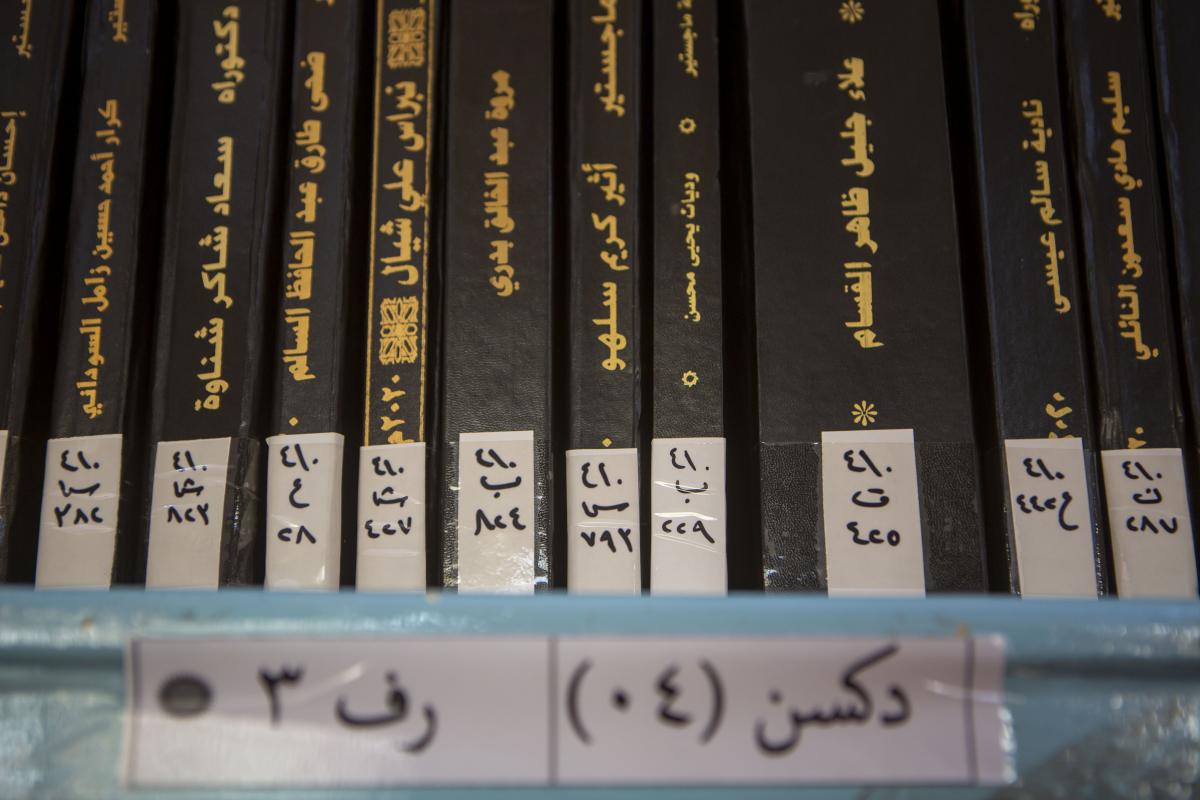 إحسان
كرار أحمد حسين زامل السوداني
٤/٠
٢٨٢
دكتوراه
سعاد شاكر شناوة
٤/٠
ضحى طارق عبد الحافظ السالم
٤/٠
ع
٢٨
نبراس علي شيال
٢٠٢٠م
٤/٠
٤٢٧
مروة عبد الخالق بدري
٤/٠
ب
٨٢٤
ماجستير
أثير كريم سلهو
٤/٠
٧٩٣
ماجستير
وديان يحيى محسن
٤/٠
ب
٢٢٩
علاء جليل ظاهر القسام
٤/٠
ق
٤٢٥
نادية سالم عيسى
٢٠٢٠
٤/٠
سليم هادي سعيون النائلي
٤/٠
ن
٢٨٧
دكسن (٠٤) رف ٣